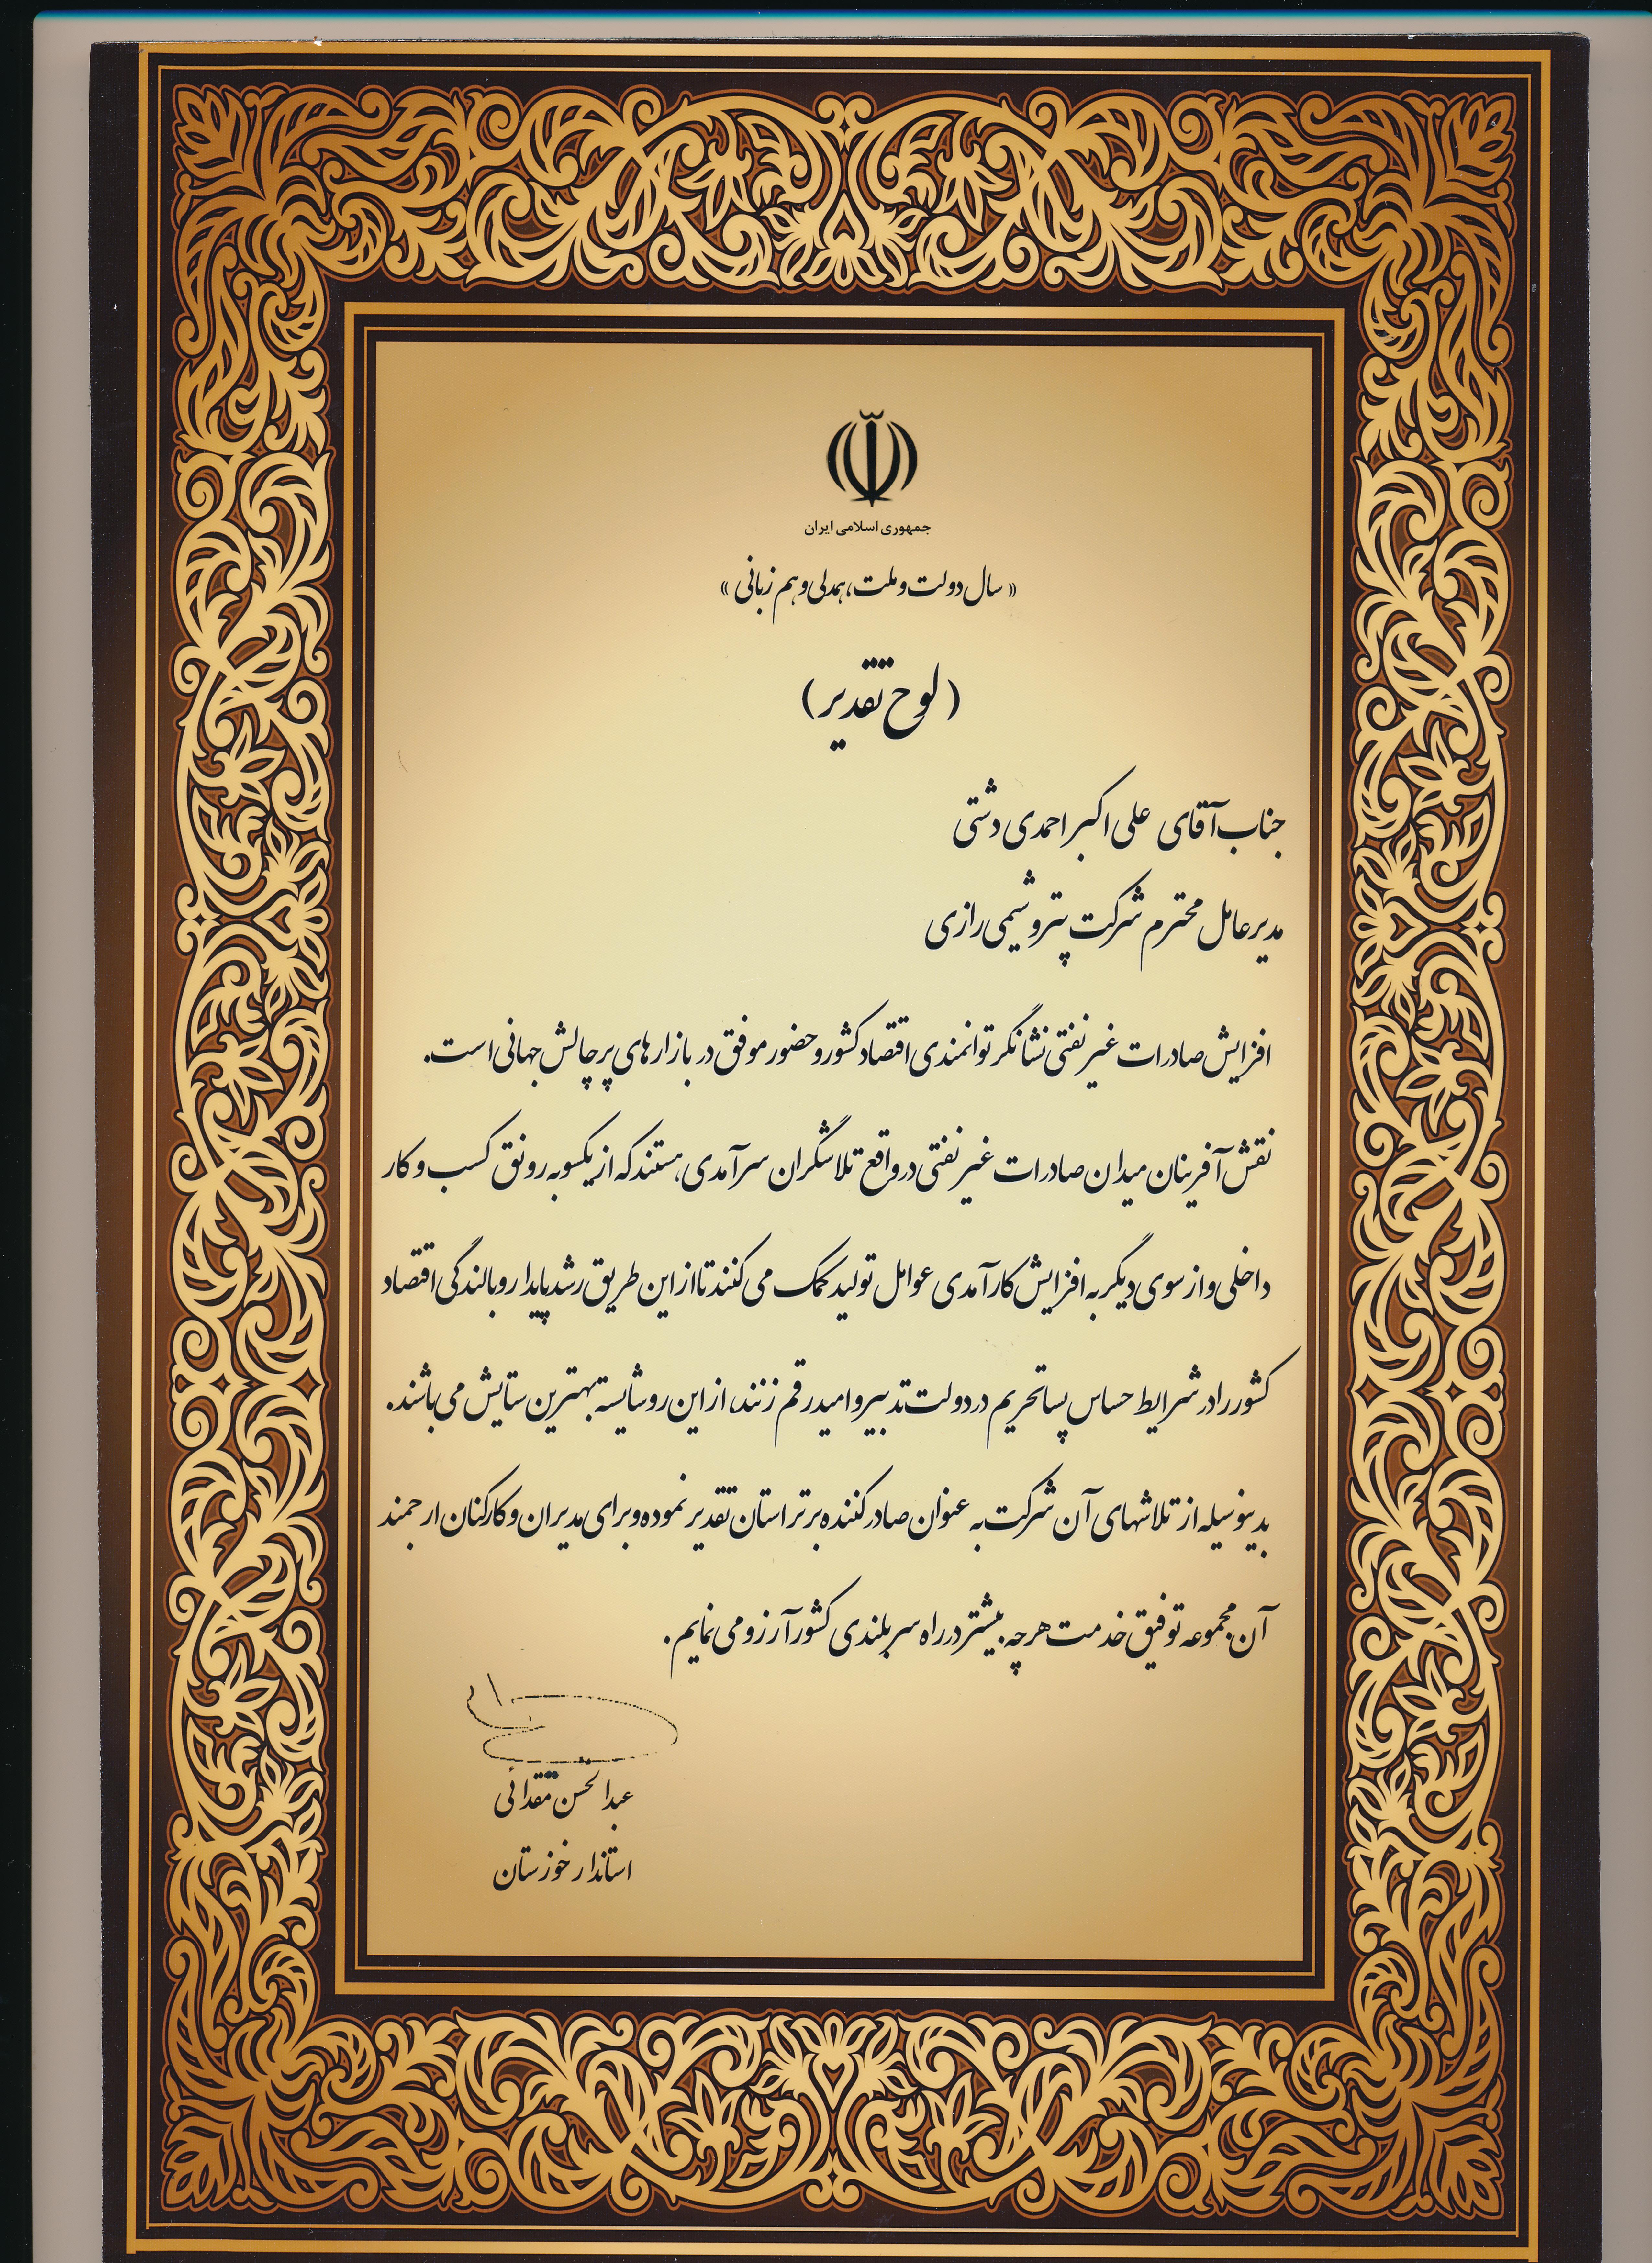 جمهوری اسلامی ایران
« سال دولت و ملت، همدلی و هم زبانی »
( لوح تقدیر )
جناب آقای علی اکبر احمدی دشتی
مدیرعامل محترم شرکت پتروشیمی رازی
افزایش صادرات غیر نفتی نشانگر توانمندی اقتصاد کشور و حضور موفق در بازارهای پر چالش جهانی است.
نقش آفرینان میدان صادرات غیر نفتی در واقع تلاشگران سرآمدی هستند که از یکسو به رونق کسب و کار
داخلی و از سوی دیگر به افزایش کارآمدی عوامل تولید کمک می کنند تا از این طریق رشد پایدار و بالندگی اقتصاد
کشور را در شرایط حساس پسا تحریم در دولت تدبیر و امید رقم زنند، از این رو شایسته بهترین ستایش می باشند.
بدینوسیله از تلاشهای آن شرکت به عنوان صادر کننده برتر استان تقدیر نموده و برای مدیران و کارکنان ارجمند
آن مجموعه توفیق خدمت هر چه بیشتر در راه سربلندی کشور آرزو می نمایم.
عبدالحسن مقتدائی
استاندار خوزستان